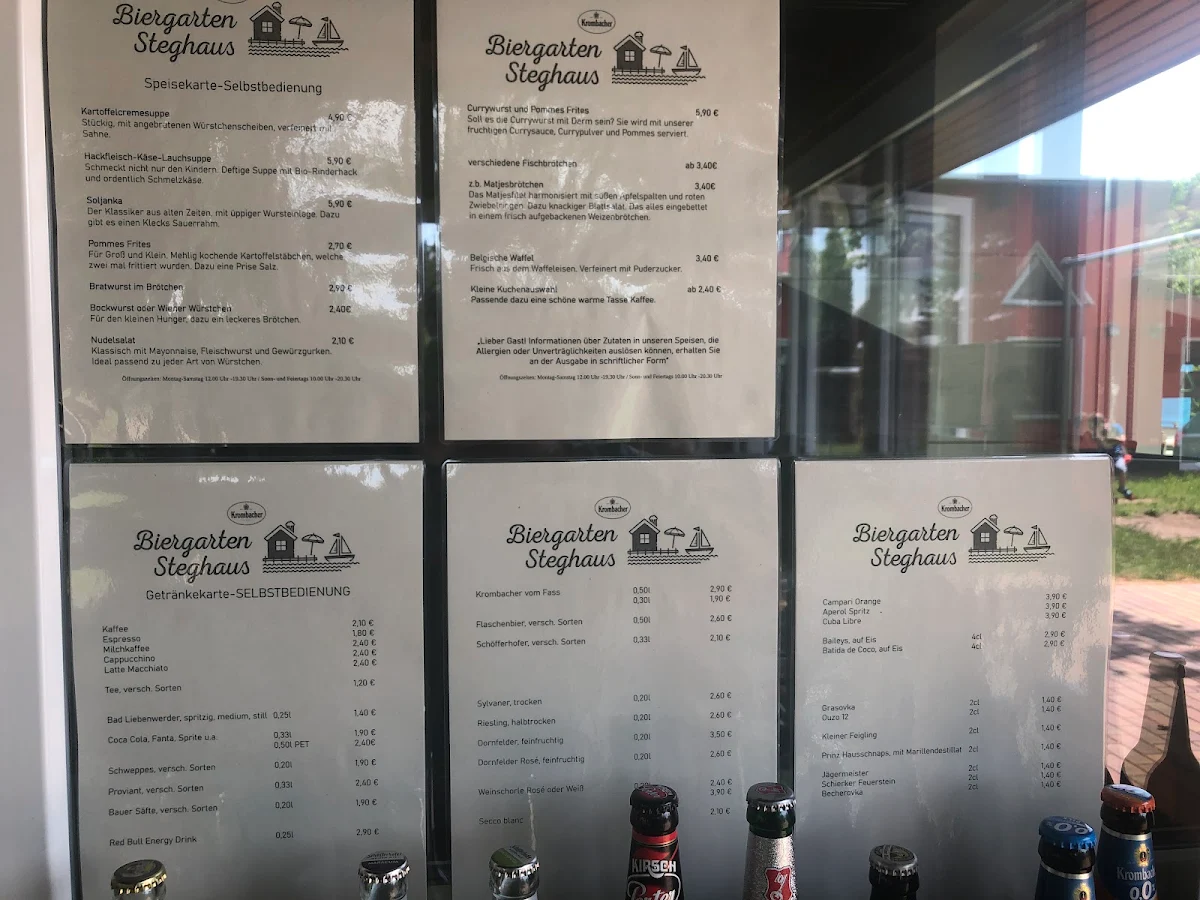 Biergarten
Steghaus
Speisekarte-Selbstbedienung
Kartoffelcremesuppe 4,90 €
Stückig, mit angebratenen Würstchenscheiben, verfeinert mit
Sahne.
Hackfleisch-Käse-Lauchsuppe 5,90 €
Schmeckt nicht nur den Kindern. Deftige Suppe mit Bio-Rinderhack
und ordentlich Schmelzkäse.
Soljanka 5,90 €
Der Klassiker aus alten Zeiten, mit üppiger Wursteinlage. Dazu
gibt es einen Klecks Sauerrahm.
Pommes Frites 2,70 €
Für Groß und Klein. Mehlig kochende Kartoffelstäbchen, welche
zwei mal frittiert wurden. Dazu eine Prise Salz.
Bratwurst im Brötchen 2,90 €
Bockwurst oder Wiener Würstchen 2,40€
Für den kleinen Hunger, dazu ein leckeres Brötchen.
Nudelsalat 2,10 €
Klassisch mit Mayonnaise, Fleischwurst und Gewürzgurken.
Ideal passend zu jeder Art von Würstchen.
Öffnungszeiten: Montag-Samstag 12.00 Uhr -19.30 Uhr / Sonn- und Feiertags 10.00 Uhr -20.30 Uhr
Krombacher
Biergarten
Steghaus
Currywurst und Pommes Frites 5,90 €
Soll es die Currywurst mit Derm sein? Sie wird mit unserer
fruchtigen Currysauce, Currypulver und Pommes serviert.
verschiedene Fischbrötchen ab 3,40€
z.b. Matjesbrötchen 3,40€
Das Matjesfilet harmonisiert mit süßen Apfelspalten und roten
Zwiebelringen. Dazu knackiger Blattsalat. Das alles eingebettet
in einem frisch aufgebackenen Weizenbrötchen.
Belgische Waffel 3,40 €
Frisch aus dem Waffeleisen. Verfeinert mit Puderzucker.
Kleine Kuchenauswahl ab 2,40 €
Passende dazu eine schöne warme Tasse Kaffee.
„Lieber Gast! Informationen über Zutaten in unseren Speisen, die
Allergien oder Unverträglichkeiten auslösen können, erhalten Sie
an der Ausgabe in schriftlicher Form"
Öffnungszeiten: Montag-Samstag 12.00 Uhr -19.30 Uhr / Sonn- und Feiertags 10.00 Uhr -20.30 Uhr
Krombacher
Biergarten
Steghaus
Getränkekarte-SELBSTBEDIENUNG
Kaffee 2,10 €
Espresso 1,80 €
Milchkaffee 2,40 €
Cappucchino 2,40 €
Latte Macchiato 2,40 €
Tee, versch. Sorten 1,20 €
Bad Liebenwerder, spritzig, medium, still 0,25l 1,40 €
Coca Cola, Fanta, Sprite u.a. 0,33l 1,90 €
0,50l PET 2,40€
Schweppes, versch. Sorten 0,20l 1,90 €
Proviant, versch. Sorten 0,33l 2,40 €
Bauer Säfte, versch. Sorten 0,20l 1,90 €
Red Bull Energy Drink 0,25l 2,90 €
Krombacher
Biergarten
Steghaus
Krombacher vom Fass 0,50l 2,90 €
0,30l 1,90 €
Flaschenbier, versch. Sorten 0,50l 2,60 €
Schöfferhofer, versch. Sorten 0,33l 2,10 €
Sylvaner, trocken 0,20l 2,60 €
Riesling, halbtrocken 0,20l 2,60 €
Dornfelder, feinfruchtig 0,20l 3,50 €
Dornfelder Rosé, feinfruchtig 0,20l 2,60 €
Weinschorle Rosé oder Weiß 2,40 €
3,90 €
Secco blanz 2,10 €
Krombacher
Biergarten
Steghaus
Campari Orange 3,90 €
Aperol Spritz 3,90 €
Cuba Libre 3,90 €
Baileys, auf Eis 4cl 2,90 €
Batida de Coco, auf Eis 4cl 2,90 €
Grasovka 2cl 1,40 €
Ouzo 12 2cl 1,40 €
Kleiner Feigling 2cl 1,40 €
Prinz Hausschnaps, mit Marillendestillat 2cl 1,40 €
Jägermeister 2cl 1,40 €
Schierker Feuerstein 2cl 1,40 €
Becherovka 2cl 1,40 €
KIRSCH
0,0
Krombacher
0,0